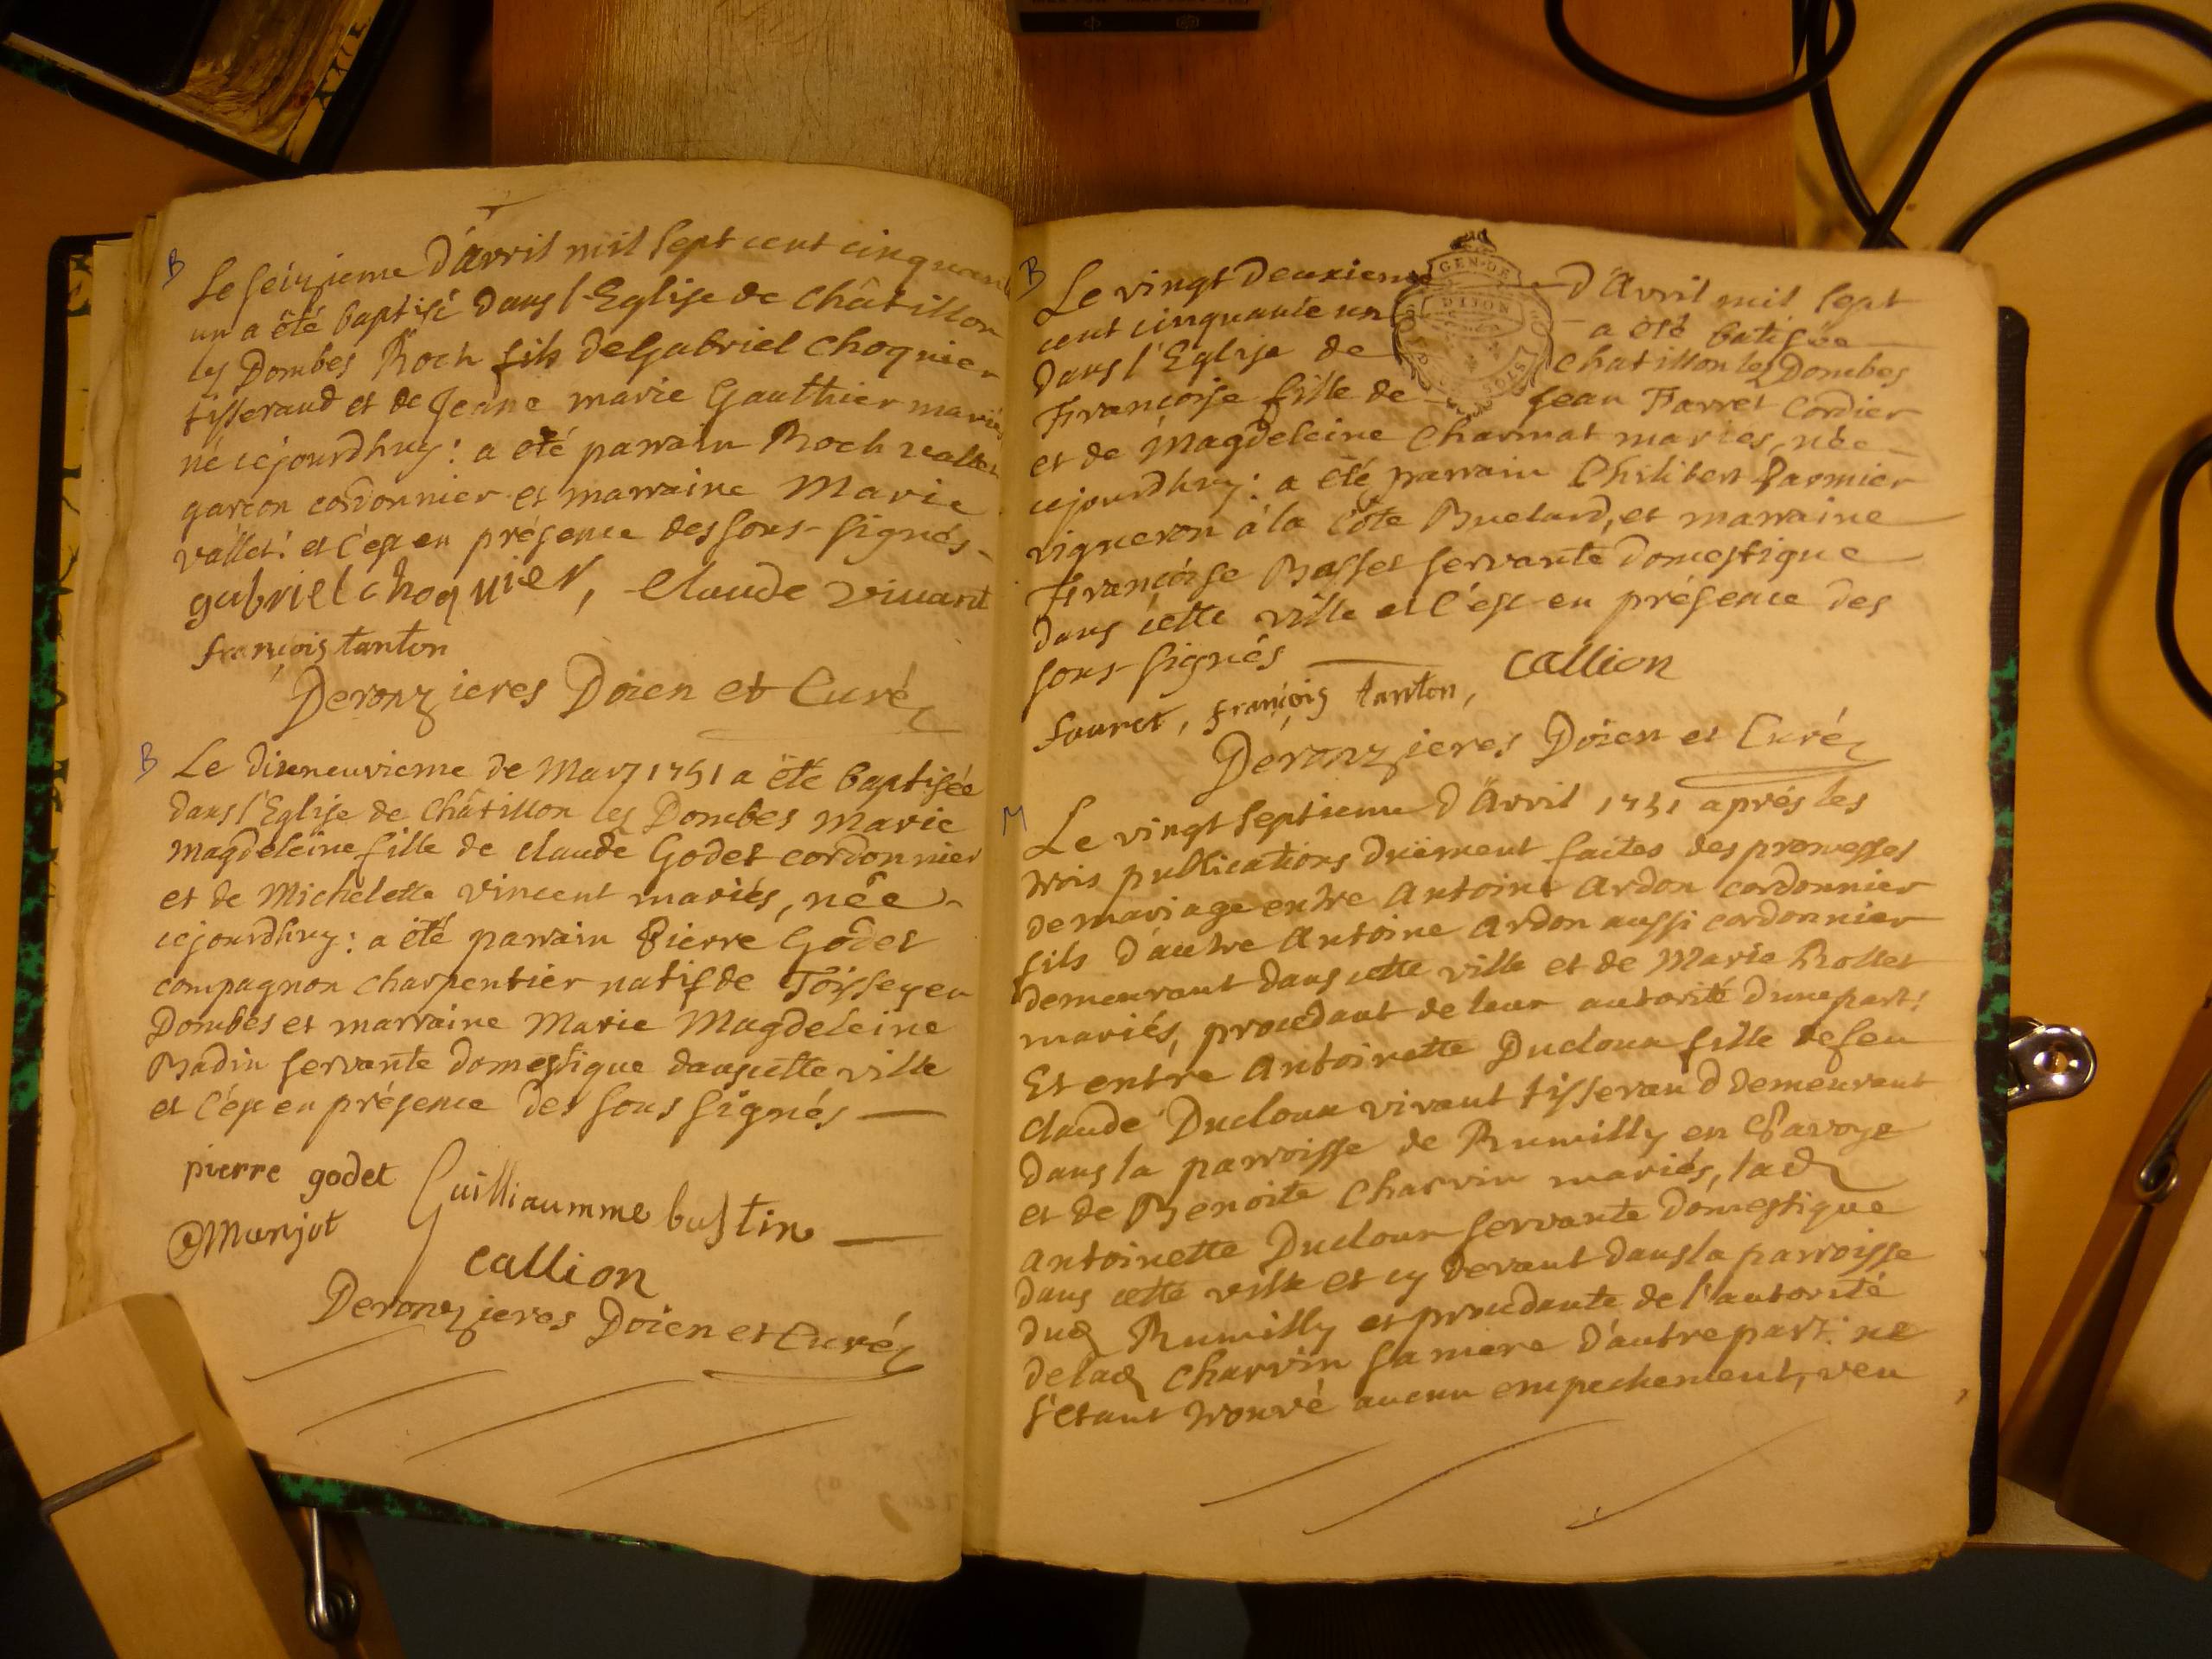 B
Le seizieme d'Avril mil sept cent cinquante
un a été baptisé dans l'Eglise de Châtillon
les Dombes Roch fils de Gabriel Choquier
tisserand et de Jeanne marie Gauthier mariés
né cejourdhuy: a été parrain Roch vallet
garcon cordonnier et marraine Marie
vallet: et c'est en présence des sous-signés-
gabriel choquier, Claude vivant
françois tanton
Deronzieres Doien et Curé
B
Le dixneuvieme de Mars 1751 a été baptisée
dans l'Eglise de Châtillon les Dombes marie
magdeleine fille de claude Godet cordonnier
et de Michelette vincent mariés, née
cejourdhuy: a été parrain Pierre Godet
compagnon charpentier natif de Toissey en
Dombes et marraine Marie Magdeleine
Badin servante domestique dans cette ville
et c'est en présence des sous signés
pierre godet Guilliaumme bustin
Munjot
callion
Deronzieres Doien et Curé
B
GEN·DE
DIJON
Le vingt deuxieme d'Avril mil sept
cent cinquante un a été batisée
dans l'Eglise de Chatillon les Dombes
Françoise fille de Jean Farret Cordier
et de Magdeleine Charmat mariés, née
cejourdhuy: a été parrain Philibert Parmier
vigneron à la Côte Buelard, et marraine
Françoise Basset servante domestique
dans cette ville et c'est en présence des
sous-signés
callion
fouret, françois tanton,
Deronzieres Doien et Curé
M
Le vingt septieme d'Avril 1751 aprés les
trois publications duëment faites des promesses
de mariage entre Antoine Ardon cordonnier
fils d'autre Antoine Ardon aussi cordonnier
demeurant dans cette ville et de Marie Rollet
mariés, procedant de leur autorité d'une part:
Et entre Antoinette Ducloux fille de feu
Claude Ducloux vivant tisserand demeurant
dans la parroisse de Rumilly en Savoye
et de Benoite Charvin mariés, lad
Antoinette Ducloux servante domestique
dans cette ville et cy devant dans la parroisse
dud Rumilly et procedante de l'autorité
de lad Charvin sa mere d'autre part: ne
s'etant trouvé aucun empechement, veu